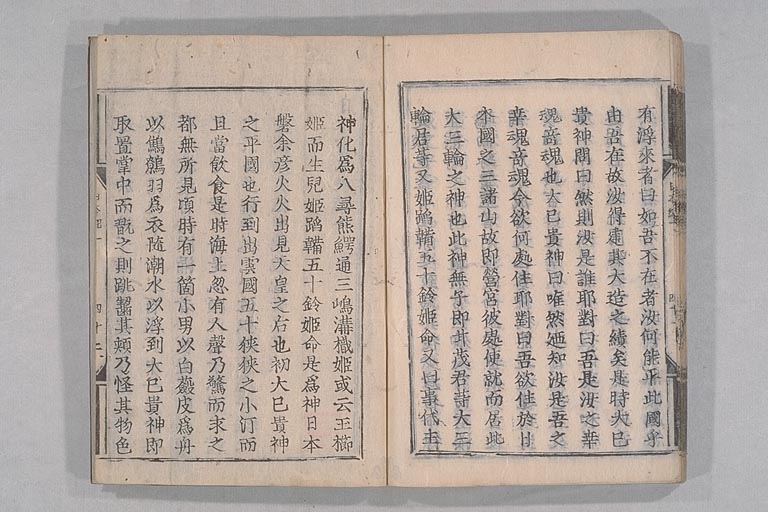 有浮來者曰如吾不在者汝何能平此國乎
由吾在故汝得建其大造之績矣是時大巳
貴神問曰然則汝是誰耶對曰吾是汝之幸
魂奇魂也大巳貴神曰唯然廼知汝是吾之
幸魂奇魂今欲何處住耶對曰吾欲住於日
本國之三諸山故即營宮彼處使就而居此
大三輪之神也此神無子即甘茂君等大三
輪君等又姬蹈鞴五十鈴姬命又曰事代主
神化爲八尋熊鰐通三嶋溝樴姬或云玉櫛
姬而生兒姬蹈鞴五十鈴姬命是爲神日本
磐余彦火火出見天皇之后也初大巳貴神
之平國也行到出雲國五十狹狹之小汀而
且當飲食是時海上忽有人聲乃驚而求之
都無所見頃時有一箇小男以白蘞皮爲舟
以鷦鷯羽爲衣隨潮水以浮到大巳貴神即
取置掌中而翫之則跳齧其頰乃怪其物色
四十二